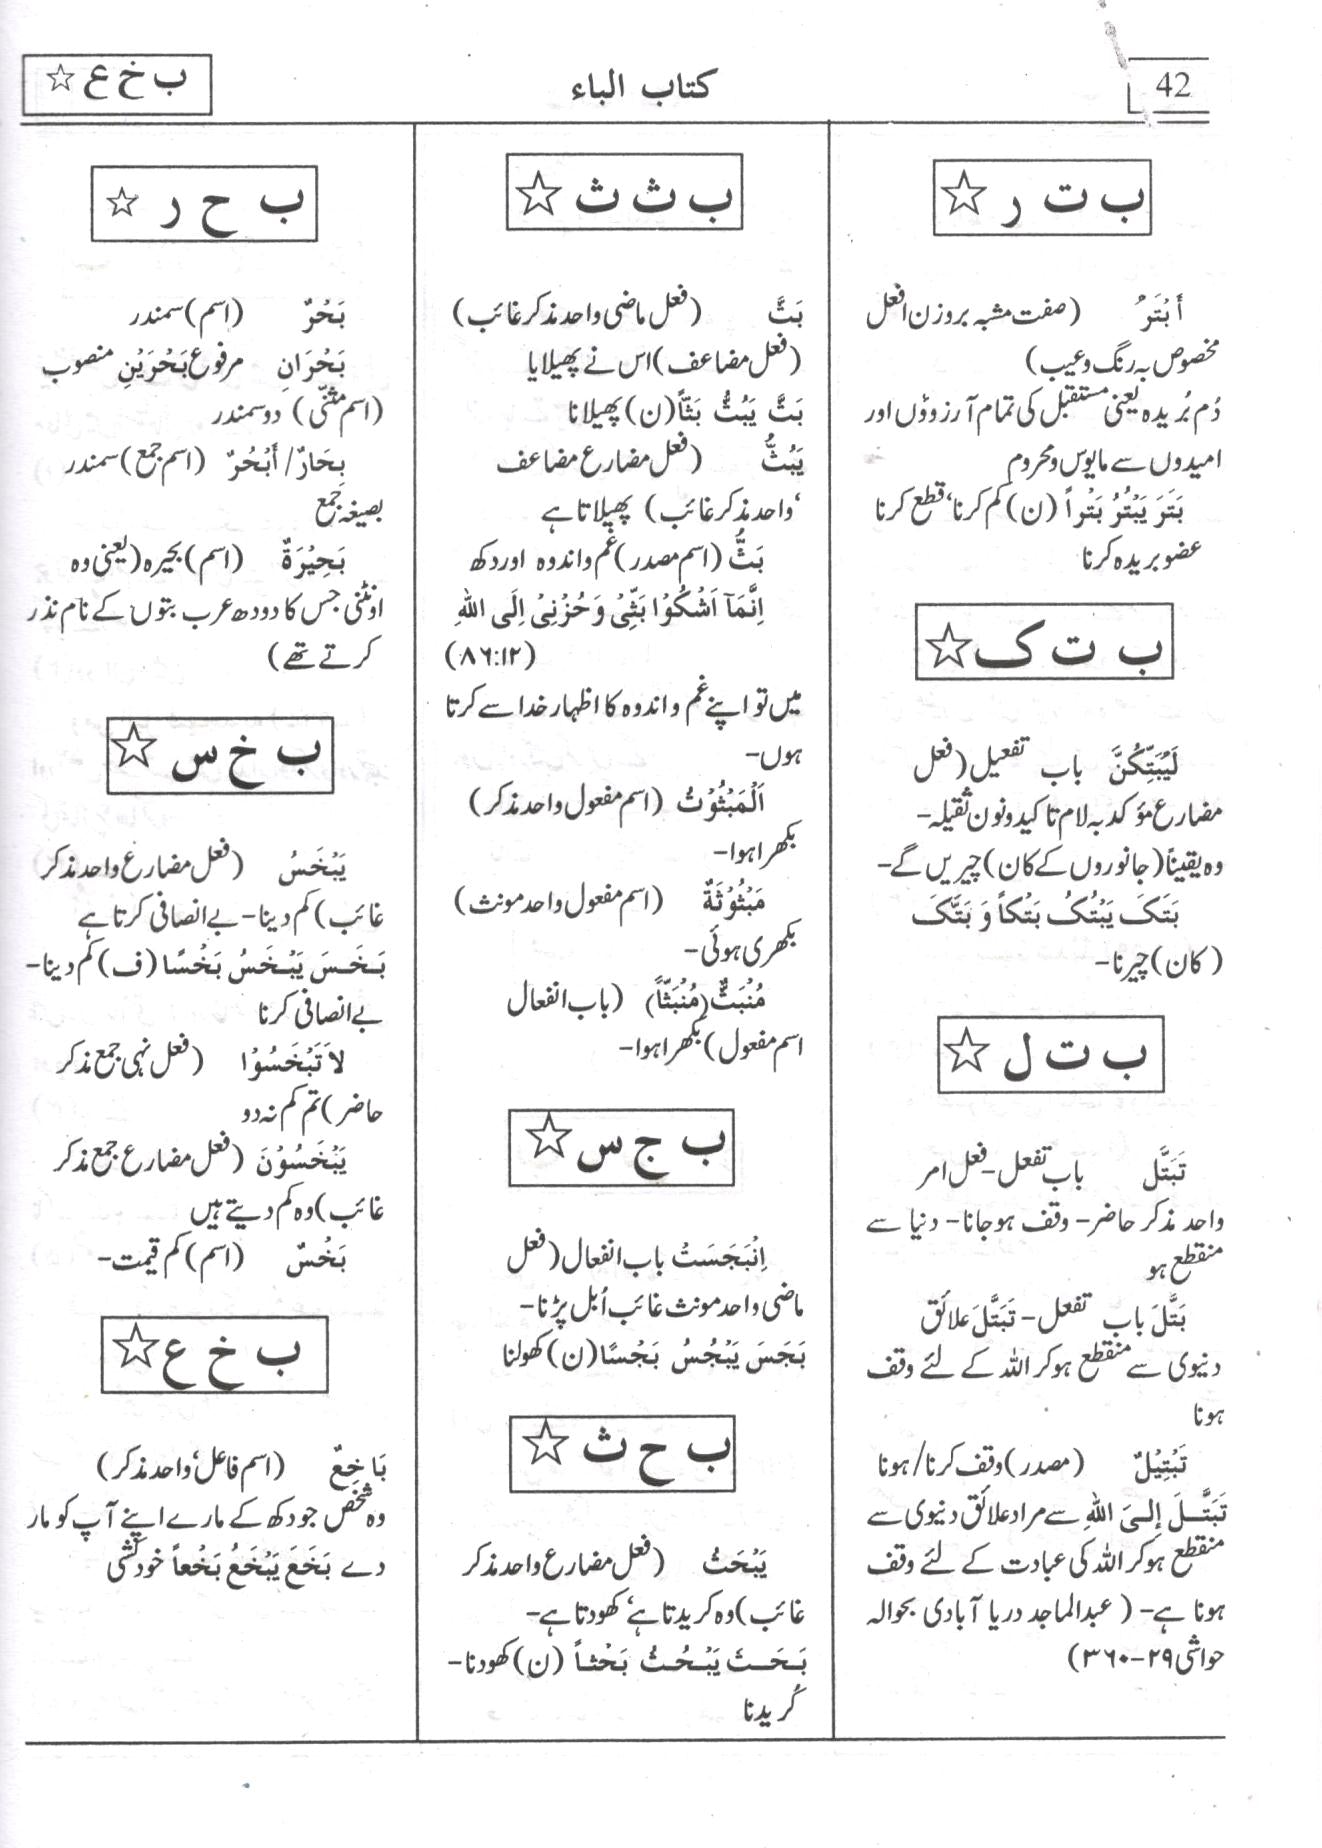 42
کتاب الباء
ب خ ع ☆
ب ت ر ☆
أَبْتَرُ (صفت مشبہ بروزن افعل
مخصوص بہ رنگ وعیب)
دُم بُریدہ یعنی مستقبل کی تمام آرزوؤں اور
امیدوں سے مایوس ومحروم
بَتَرَ يَبْتُرُ بَتْراً (ن) کم کرنا، قطع کرنا
عضو بریدہ کرنا
ب ت ک ☆
لَيُبَتِّكُنَّ باب تفعیل (فعل
مضارع مؤکد بہ لام تاکید ونون ثقیلہ-
وہ یقیناً (جانوروں کے کان) چیریں گے-
بَتَکَ يَبْتُکُ بَتْکاً وَ بَتَّکَ
(کان) چیرنا-
ب ت ل ☆
تَبَتَّل باب تفعل- فعل امر
واحد مذکر حاضر- وقف ہوجانا- دنیا سے
منقطع ہو
بَتَّلَ باب تفعل- تَبَتَّلَ علائق
دنیوی سے منقطع ہوکر اللہ کے لئے وقف
ہونا
تَبْتِيْلٌ (مصدر) وقف کرنا/ہونا
تَبَتَّلَ إِلَیَ اللهِ سے مراد علائق دنیوی سے
منقطع ہوکر اللہ کی عبادت کے لئے وقف
ہونا ہے- (عبدالماجد دریا آبادی بحوالہ
حواشی ۲۹-۳۶۰)
ب ث ث ☆
بَثَّ (فعل ماضی واحد مذکر غائب)
(فعل مضاعف) اس نے پھیلایا
بَثَّ يَبُثُّ بَثّاً (ن) پھیلانا
يَبُثُّ (فعل مضارع مضاعف
‘واحد مذکر غائب) پھیلاتا ہے
بَثٌّ (اسم مصدر) غم واندوہ اور دکھ
اِنَّمَآ اَشْكُوْا بَثِّىْ وَحُزْنِىْ اِلَى اللهِ
(۸۶:۱۲)
میں تو اپنے غم و اندوہ کا اظہار خدا سے کرتا
ہوں-
اَلْمَبْثُوْثُ (اسم مفعول واحد مذکر)
بکھرا ہوا-
مَبْثُوْثَةٌ (اسم مفعول واحد مونث)
بکھری ہوئی-
مُنْبَثٌّ (مُنْبَثّاً) (باب انفعال
اسم مفعول) بکھرا ہوا-
ب ج س ☆
اِنْبَجَسَتْ باب انفعال (فعل
ماضی واحد مونث غائب اُبل پڑنا-
بَجَسَ يَبْجُسُ بَجْسًا (ن) کھولنا
ب ح ث ☆
يَبْحَثُ (فعل مضارع واحد مذکر
غائب) وہ کریدتا ہے، کھودتا ہے-
بَحَثَ يَبْحُثُ بَحْثاً (ن) کھودنا-
کُریدنا
ب ح ر ☆
بَحْرٌ (اسم) سمندر
بَحْرَانِ مرفوع بَحْرَيْنِ منصوب
(اسم مثنّٰی) دو سمندر
بِحَارٌ/أَبْحُرٌ (اسم جمع) سمندر
بصیغہ جمع
بَحِيْرَةٌ (اسم) بحیرہ (یعنی وہ
اونٹنی جس کا دودھ عرب بتوں کے نام نذر
کرتے تھے)
ب خ س ☆
يَبْخَسُ (فعل مضارع واحد مذکر
غائب) کم دینا- بے انصافی کرتا ہے
بَخَسَ يَبْخَسُ بَخْسًا (ف) کم دینا-
بے انصافی کرنا
لاَ تَبْخَسُوْا (فعل نہی جمع مذکر
حاضر) تم کم نہ دو
يَبْخَسُوْنَ (فعل مضارع جمع مذکر
غائب) وہ کم دیتے ہیں
بَخْسٌ (اسم) کم قیمت-
ب خ ع ☆
بَاخِعٌ (اسم فاعل، واحد مذکر)
وہ شخص جو دکھ کے مارے اپنے آپ کو مار
دے بَخَعَ يَبْخَعُ بَخْعاً خودکشی